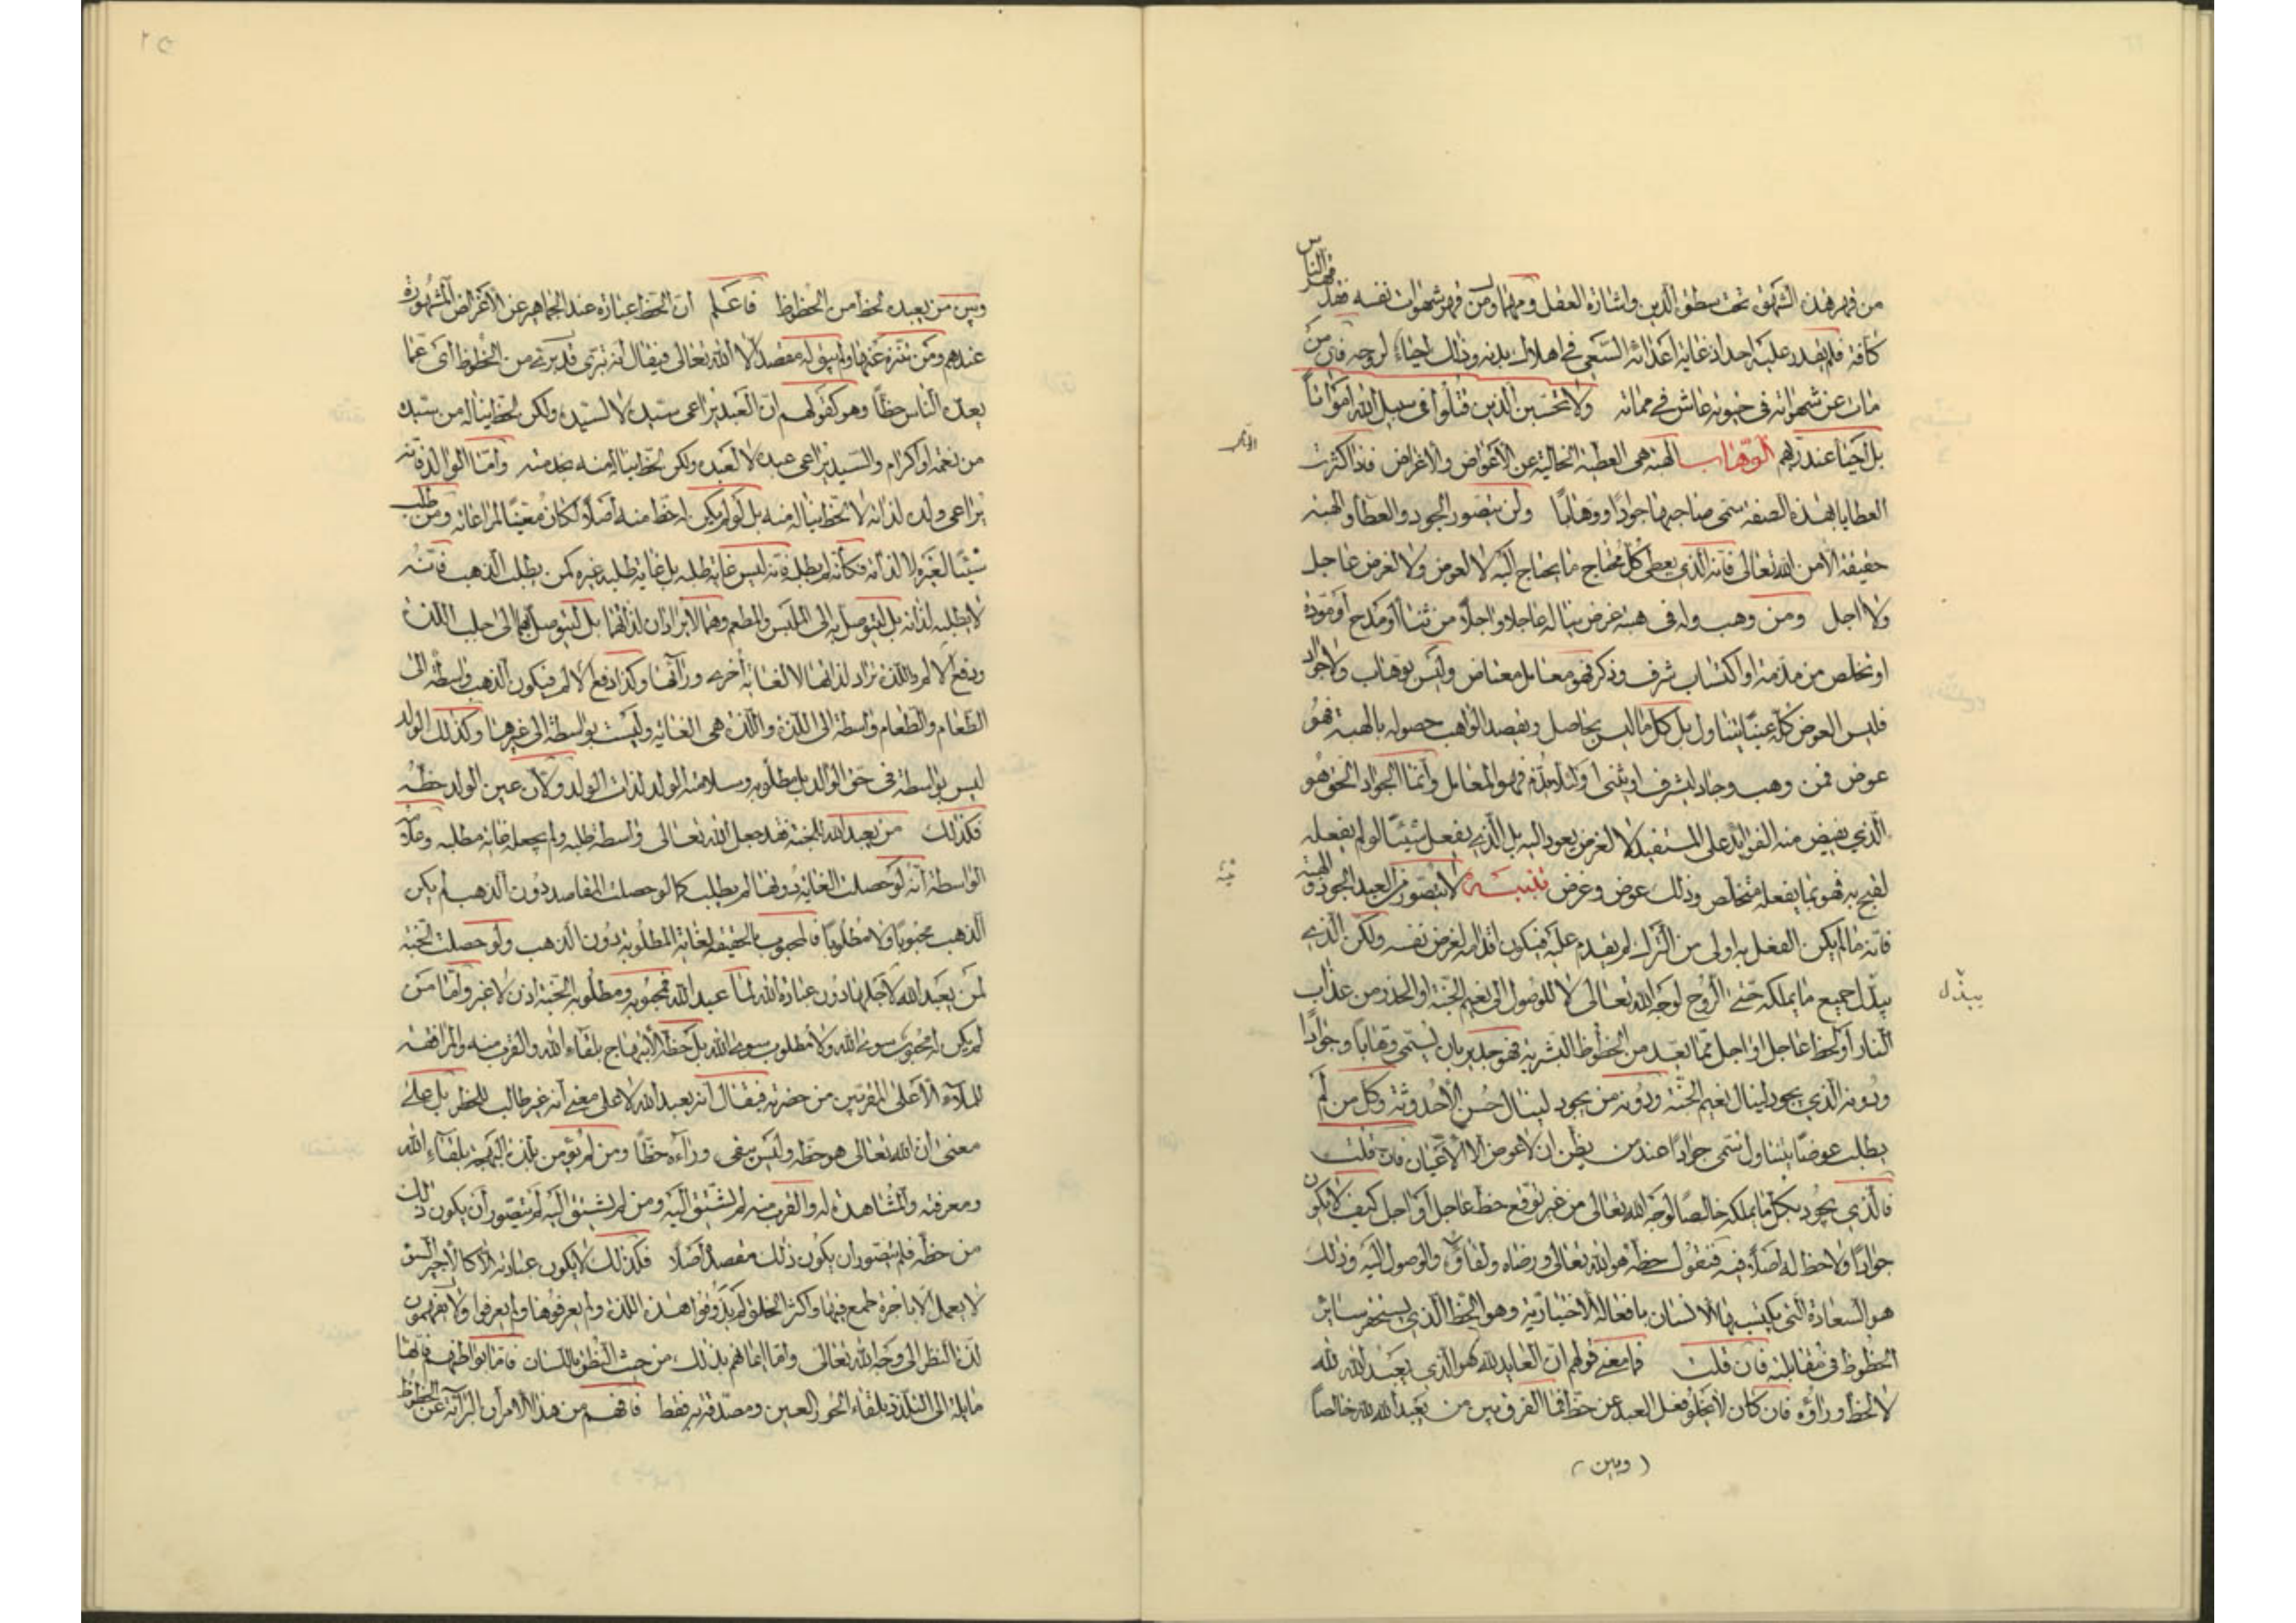 من قهر هذه الشهوة تحت سطوة الدين واشارة العقل ومهما ومن قهر شهوات نفسه فقد قهر الناس
كافة فلم يقدر عليه احد اذ غاية اعدائه السعى فى اهلاك بدنه وذلك احياء لروحه فان من
مات عن شهواته فى حيوته عاش فى مماته ولا تحسبن الذين قتلوا فى سبيل الله امواتا
بل احيآ عند ربهم الوهاب الهبة هى العطية الخالية عن الأعواض والاغراض فاذا كثرت
العطايا بهذه الصفة سمى صاحبها جوادا ووهابا ولن يتصور الجود والعطآ والهبة
حقيقة الا من الله تعالى فانه الذى يعطى كل محتاج ما يحتاج اليه لا لعوض ولا لغرض عاجل
ولا اجل ومن وهب وله فى هبته غرض يناله عاجلا واجلا من ثنآ أو مدح او مودة
او تخلص من مذمة او اكتساب شرف وذكر فهو معامل معتاض وليس بوهاب ولا جواد
فليس العوض كله عينا يتناول بل كل ما ليس بحاصل ويقصد الواهب حصوله بالهبة فهو
عوض فمن وهب وجاد ليشرف او يثنى او لئلا يذم فهو المعامل وانما الجواد الحق هو
الذى يفيض منه الفوايد على المستفيد لا لغرض يعود اليه بل الذى يفعل شيئا لو لم يفعله
لقبح به فهو بما يفعله متخلص وذلك عوض وغرض تنبيه لا يتصور من العبد الجود والهبة
فانه ما لم يكن الفعل به اولى من الترك لم يقدم عليه فيكون اقدامه لغرض نفسه ولكن الذى
يبذل جميع ما يملكه حتى الروح لوجه الله تعالى لا للوصول الى نعيم الجنة او الحذر من عذاب
النار أو لحظ عاجل او اجل مما يعد من الحظوظ البشرية فهو جدير بان يسمى وهابا وجوادا
ودونه الذى يجود لينال نعيم الجنة ودونه من يجود لينال حسن الأحدوثة وكل من لم
يطلب عوضا يتناول سمى جوادا عند من يظن ان لا عوض الا الأعيان فان قلت
فالذى يجود بكل ما يملكه خالصا لوجه الله تعالى من غير توقع حظ عاجل أو اجل كيف لا يكون
جوادا ولا حظ له اصلا فيه فنقول حظه هو الله تعالى ورضاه ولقاؤه والوصول اليه وذلك
هو السعادة التى يكتسبها الانسان بافعاله الاختيارية وهو الحظ الذى يستحقر ساير
الحظوظ فى مقابلته فان قلت فما معنى قولهم ان العابد لله هو الذى يعبد الله لله
لا لحظ وراؤه فان كان لا يخلو فعل العبد عن حظ فما الفرق بين من يعبد الله لله خالصا
( وبين )
يبذل
وبين من يعبده لحظ من الحظوظ فاعلم ان الحظ عبارة عند الجماهير عن الأغراض المشهورة
عندهم ومن تنزه عنها ولم يبق له مقصد الا الله تعالى فيقال انه تبرى من الحظوظ أى عما
يعده الناس حظا وهو كقولهم ان العبد يراعى سيده لا لسيده ولكن لحظ يناله من سيده
من نعمة او اكرام والسيد يراعى عبده لا لعبده ولكن لحظ يناله منه بخدمته واما الوالد فانه
يراعى ولده لذاته لا لحظ يناله منه بل لو لم يكن له حظ منه اصلا لكان معنيا لمراعاته ومن طلب
شيئا لغيره لا لذاته فكأنه لم يطلبه فانه ليس غاية طلبه بل غاية طلبه غيره كمن يطلب الذهب فانه
لا يطلبه لذاته بل ليتوصل به الى الملبس والمطعم وهما لا يرادان لذاتهما بل ليتوصل بهما الى جلب اللذة
ودفع الالم واللذة تراد لذاتها لا لغاية أخرى ورآها وكذا دفع الالم فيكون الذهب واسطة الى
الطعام والطعام واسطة الى اللذة واللذة هى الغاية وليست بواسطة الى غيرها وكذلك الولد
ليس بواسطة فى حق الوالد بل مطلوبه وسلامة الولد لذات الولد ولان عين الولد حظه
فكذلك من يعبد الله للجنة فقد جعل الله تعالى واسطة طلبه ولم يجعله غاية مطلبه وعلامة
الواسطة أنه لو حصلت الغاية دونها لم يطلب كما لو حصلت المقاصد دون الذهب لم يكن
الذهب محبوبا ولا مطلوبا فالمحبوب بالحقيقة الغاية المطلوبة دون الذهب ولو حصلت الجنة
لمن يعبد الله لاجلها دون عبادة الله لما عبد الله فمحبوبه ومطلوبه الجنة اذن لا غير واما من
لم يكن له محبوب سوى الله ولا مطلوب سوى الله بل حظه الابتهاج بلقاء الله والقرب منه والمرافقة
للملاء الاعلى المقربين من حضرته فيقال انه يعبد الله لا على معنى أنه غير طالب للحظ بل على
معنى ان الله تعالى هو حظه وليس يبقى وراءه حظا ومن لم يؤمن بلذة البهجة بلقآء الله
ومعرفته والمشاهدة له والقرب منه لم يشتق اليه ومن لم يشتق اليه لم يتصور أن يكون ذلك
من حظه فلم يتصور ان يكون ذلك مقصده أصلا فكذلك لا يكون عبادته الا كالأجير السوء
لا يعمل الا باجرة طمع فيها واكثر الخلق لم يذوقوا هذه اللذة ولم يعرفوها ولم يعرفوا ولا يفهمون
لذة النظر الى وجه الله تعالى وانما ايمانهم بذلك من حيث النطق باللسان فاما بواطنهم فانها
مايلة الى التلذذ بلقاء الحور العين ومصدقة به فقط فافهم من هذا الامر ان البرآءة عن الحظوظ